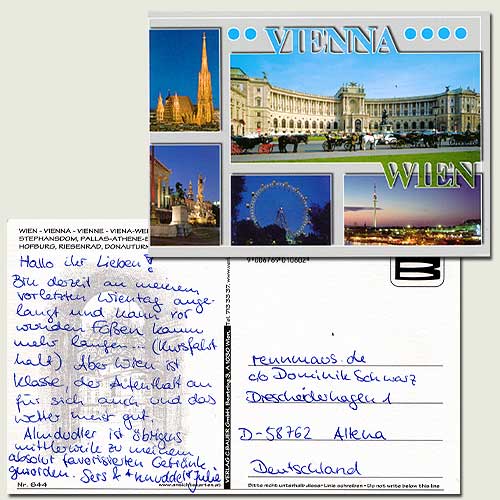 VIENNA
WIEN
WIEN - VIENNA - VIENNE - VIENA-WEI
STEPHANSDOM, PALLAS-ATHENE-B
HOFBURG, RIESENRAD, DONAUTURM
Hallo ihr Lieben!
Bin derzeit an meinem
vorletzten Wientag ange-
langt und kann vor
wunden Füßen kaum
mehr
halt) Aber Wien ist
klasse, der Aufenthalt an
für sich auch und das
Wetter meist gut.
Almdudler ist übrigens
mittlerweile zu meinem
absolut favorisierten Getränk
geworden. Sers
Julie
Nr. 644
VERLAG C. BAUER GmbH,
9 006769 010602
rennmaus.de
c/o Dominik Schwarz
Drescheiderhagen 1
D-58762 Altena
Deutschland
Bitte nicht unterhalb dieser Linie schreiben - Do not write below this line